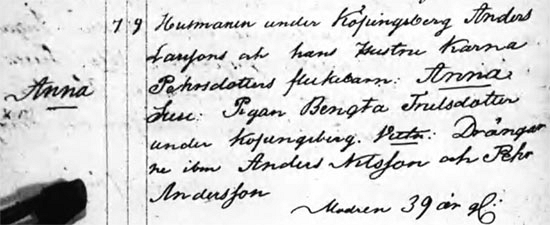 7 9 Husmannen under Köpingsberg Anders
Larssons och hans Hustru Karna
Anna Pehrsdotters flickebarn: Anna.
Susc: Pigan Bengta Trulsdotter
under Köpingsberg. Drängar
ne ibm Anders Nilsson och Pehr
Andersson
Modren 39 år gl: